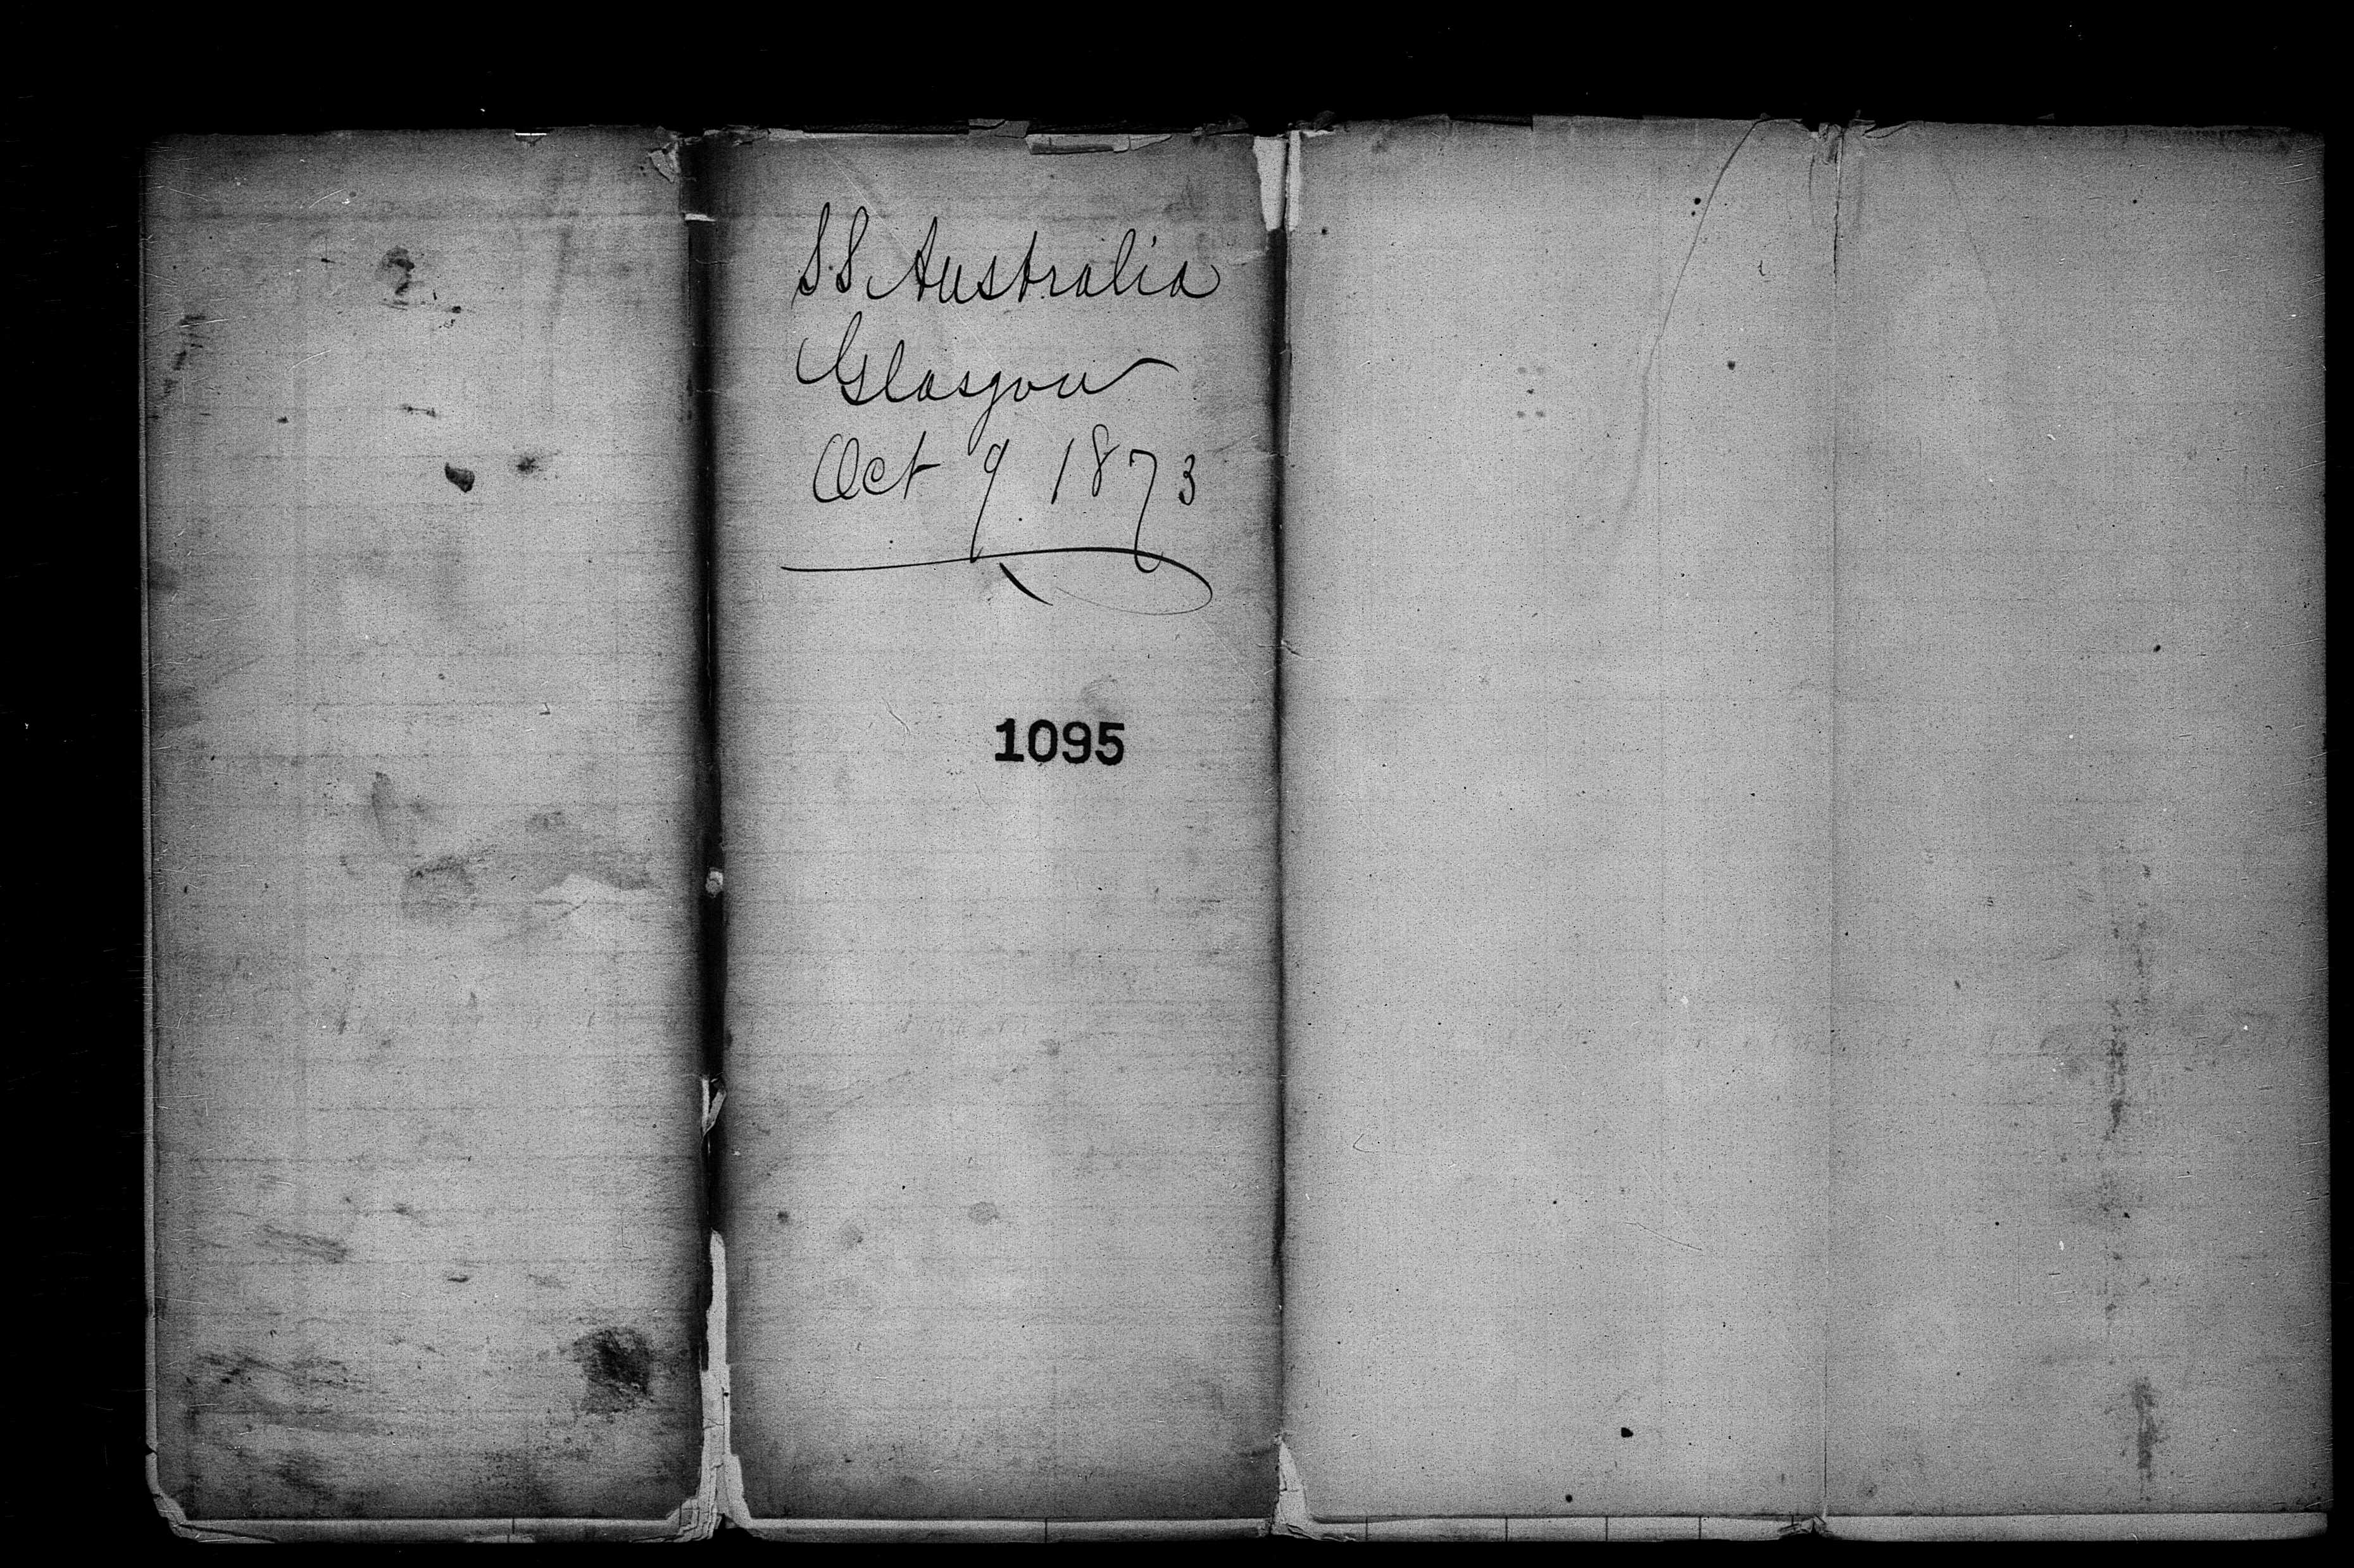 SS Australia
Glasgow
Oct 9 1873
1095